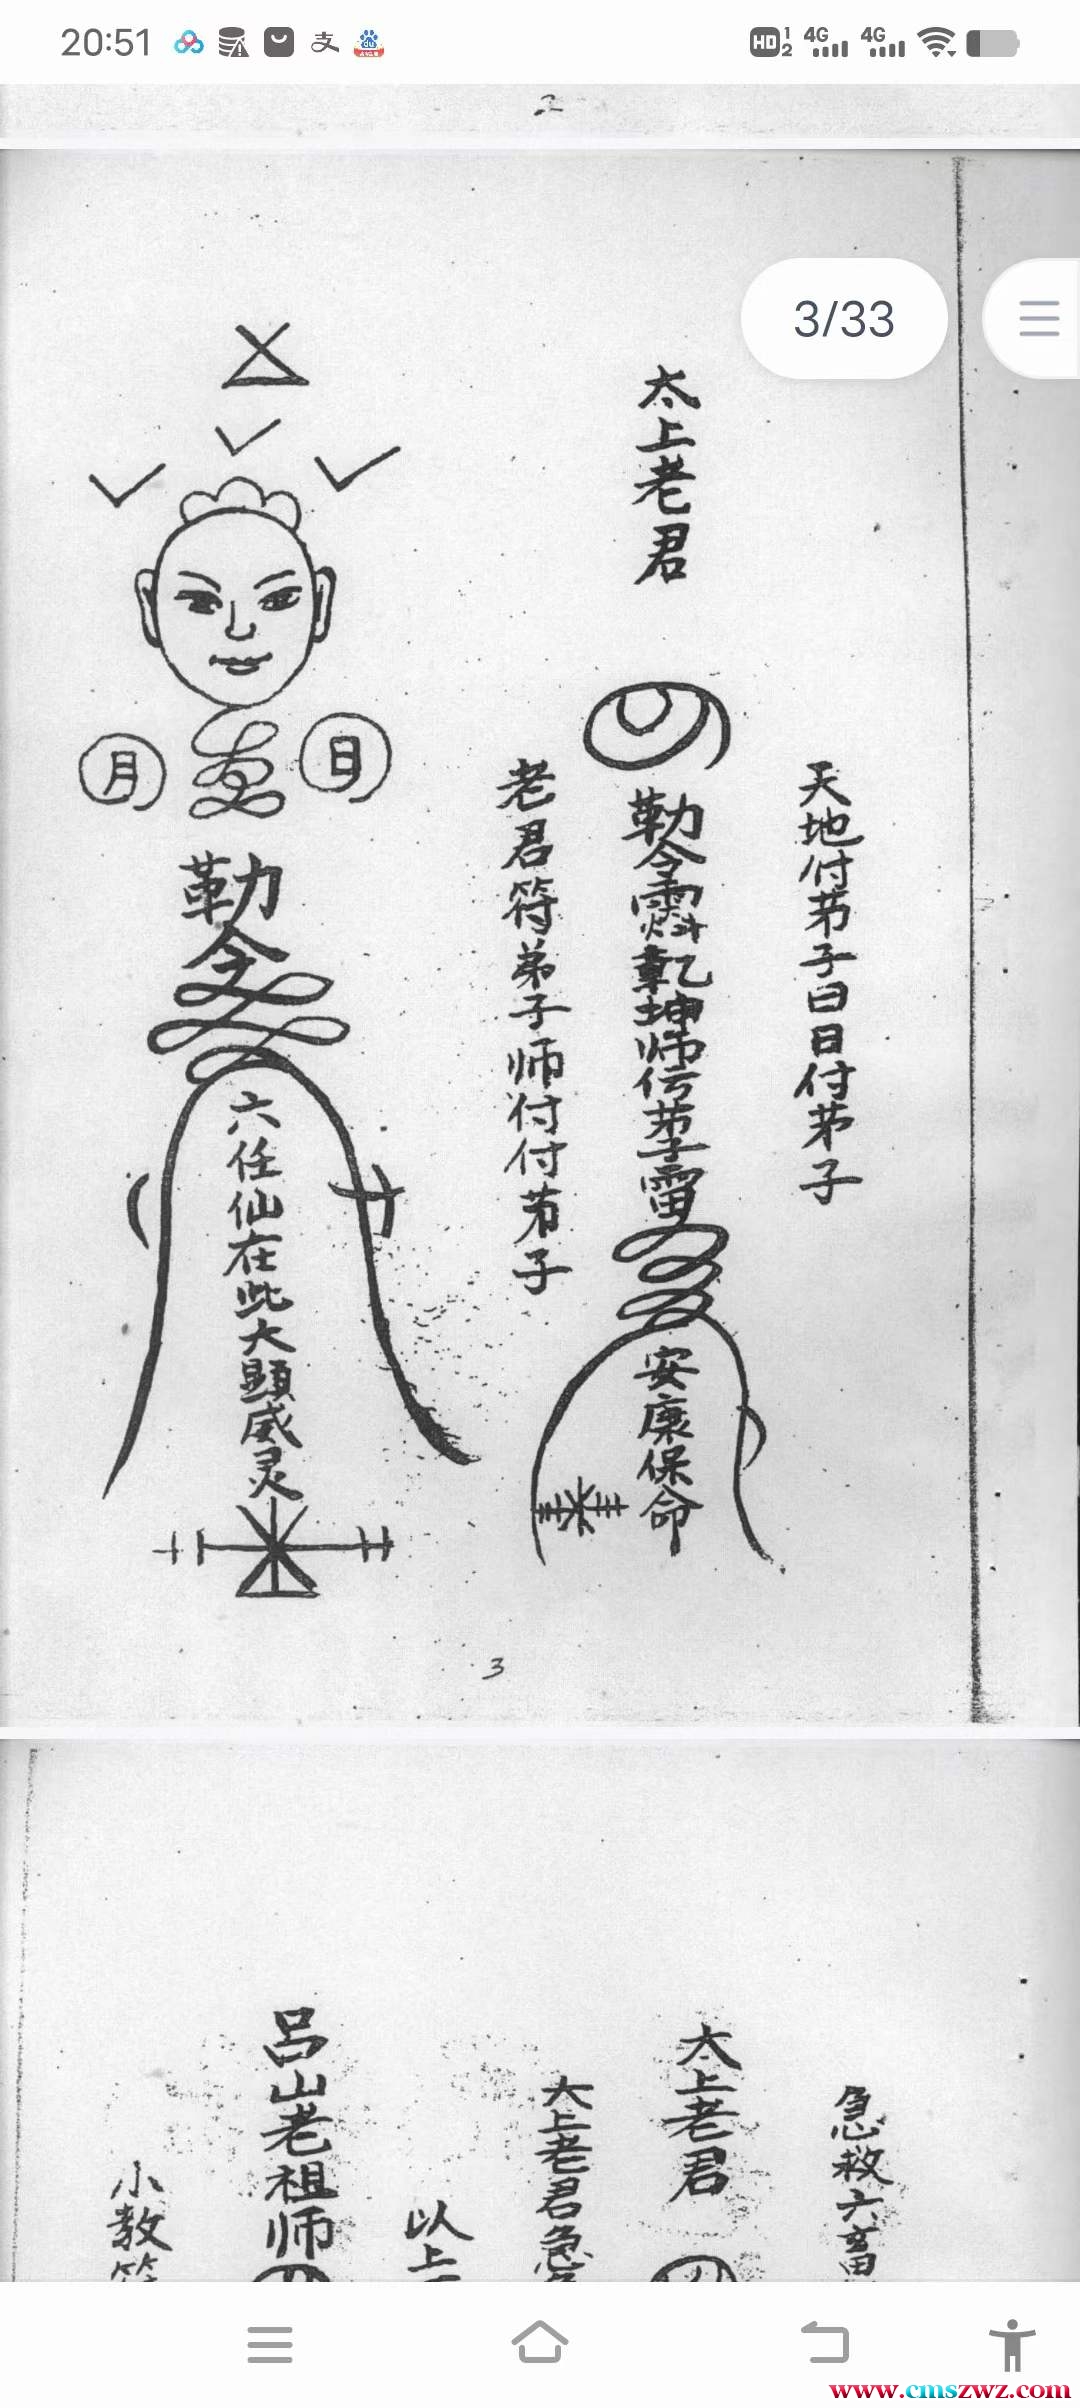 20:51
HD 1 2 4G 4G
2
3/33
太上老君
天地付苐子曰日付苐子
勒令
乾坤师
苐子雷
安康保命
老君符弟子师付付苐子
月
日
勒令
六任仙在此大顯威灵
3
急救六畜
太上老君
太上老君急
以上
吕山老祖师
小教符
www.cmszwz.com